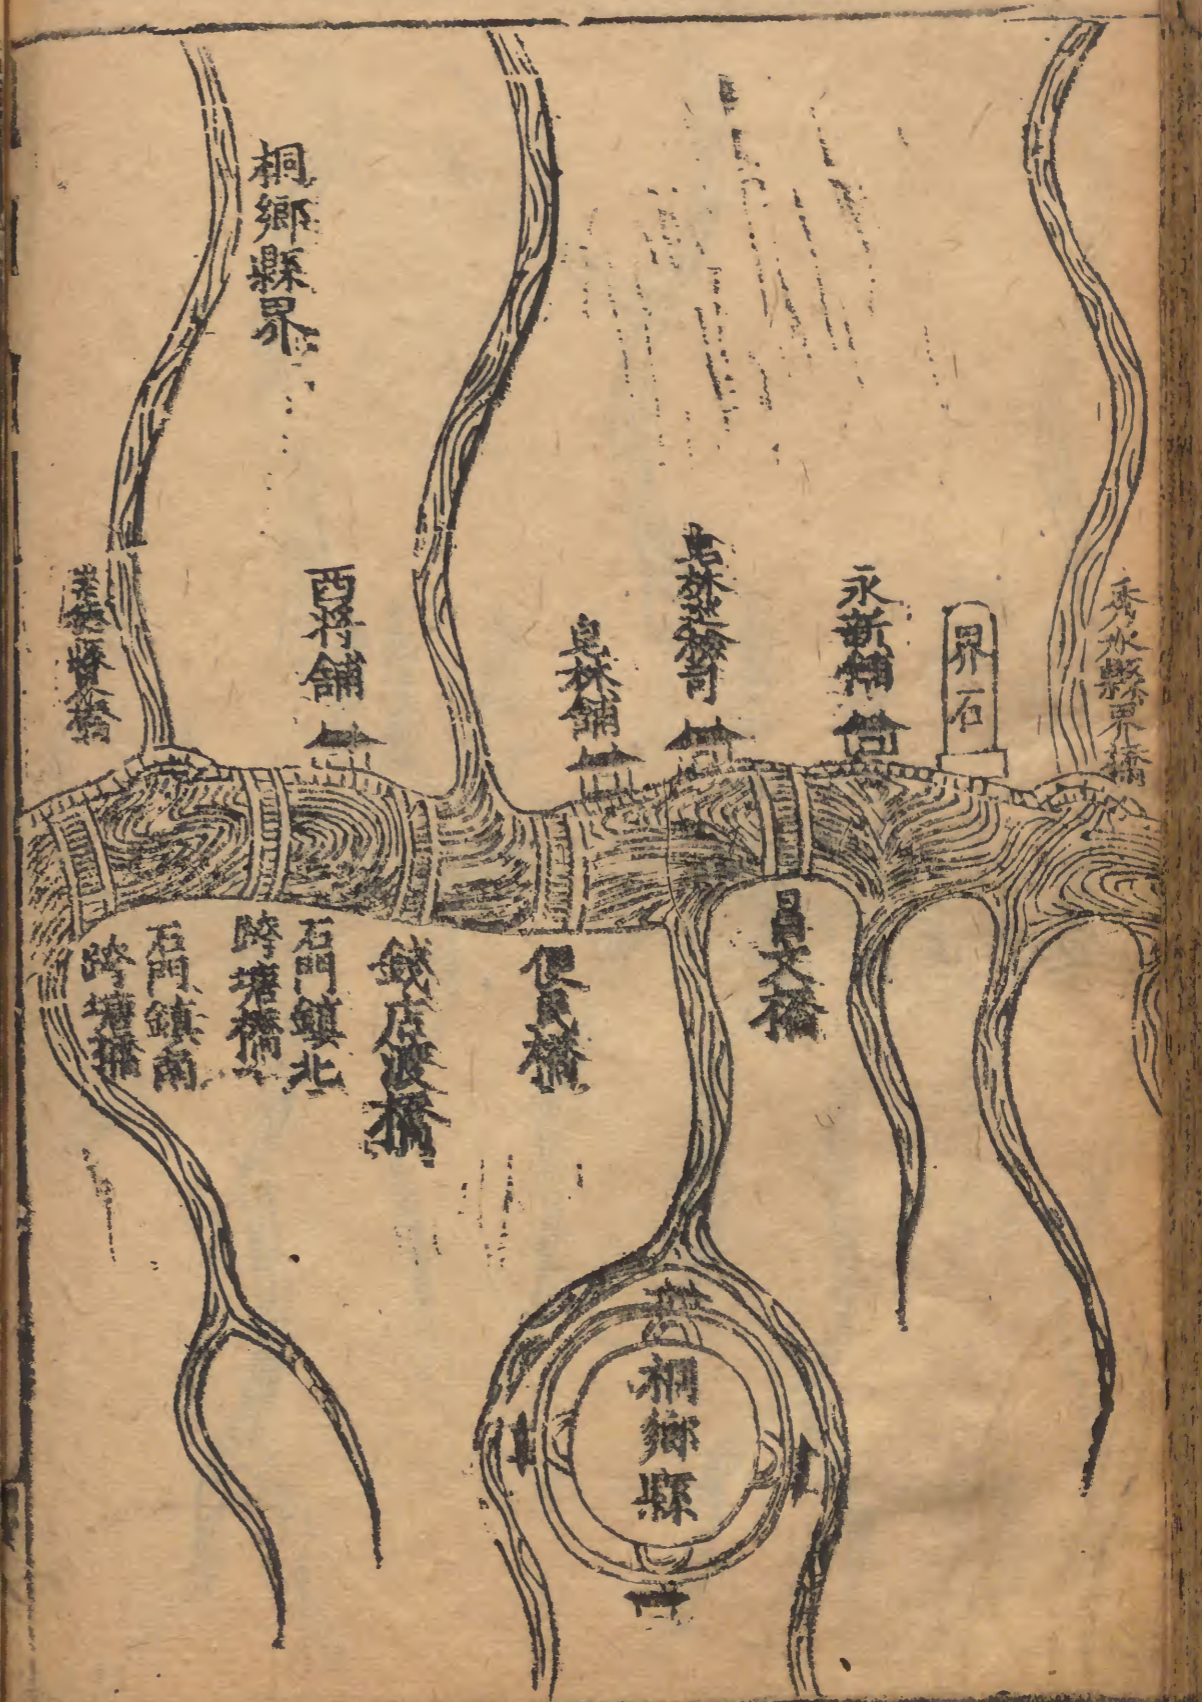 秀水縣界橋
界石
永新舖
皂林巡檢司
皂林舖
西將舖
桐鄉縣界
昌文橋
便民橋
錢店渡橋
石門鎮北
跨塘橋
石門鎮南
跨塘橋
桐鄉縣